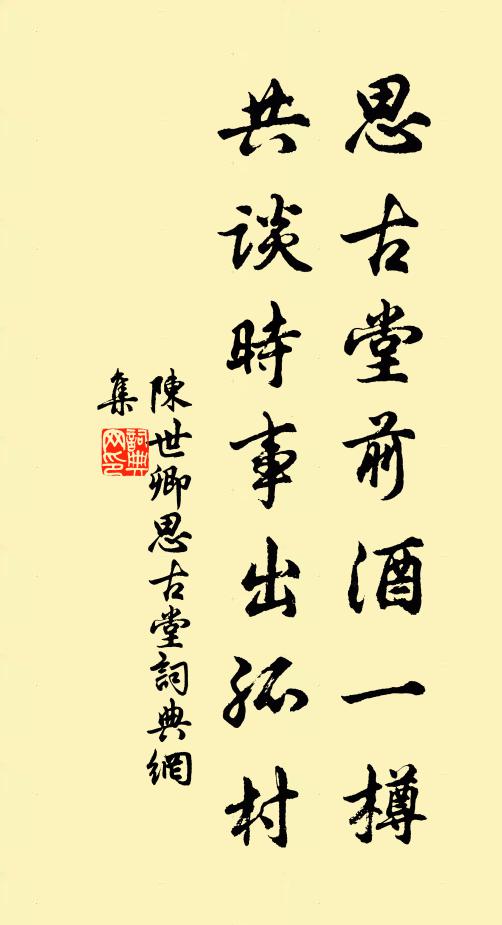 思古堂前酒一樽
共談時事出孤村
陳世卿思古堂詞典網
集
詞典网印